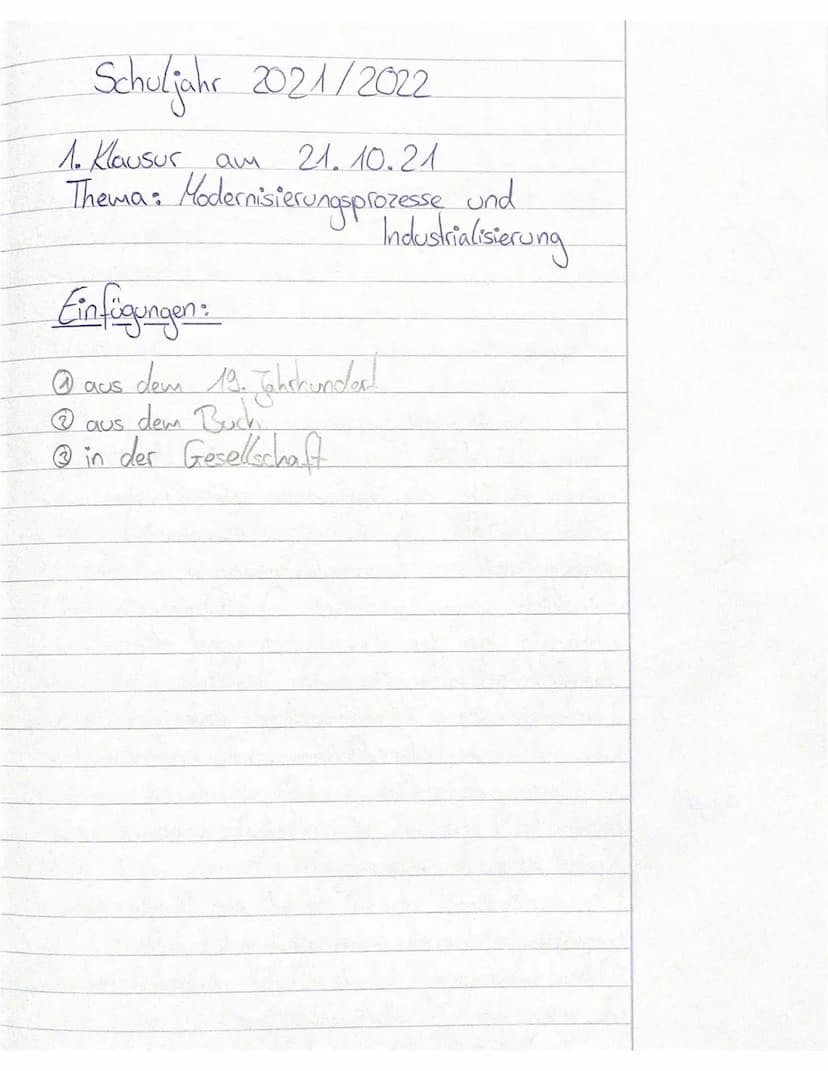 Schuljahr 2021/2022
1. Klausur am 21.10.21
Thema: Modernisierungsprozesse und
Industrialisierung
Einfügungen:
① aus dem 19. Jahrhundert
② aus dem Buch
③ in der Gesellschaft